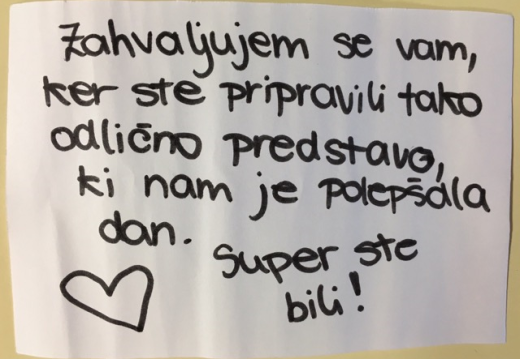 Zahvaljujem se vam,
ker ste pripravili tako
odlično predstavo,
ki nam je polepšala
dan.
Super ste
bili!